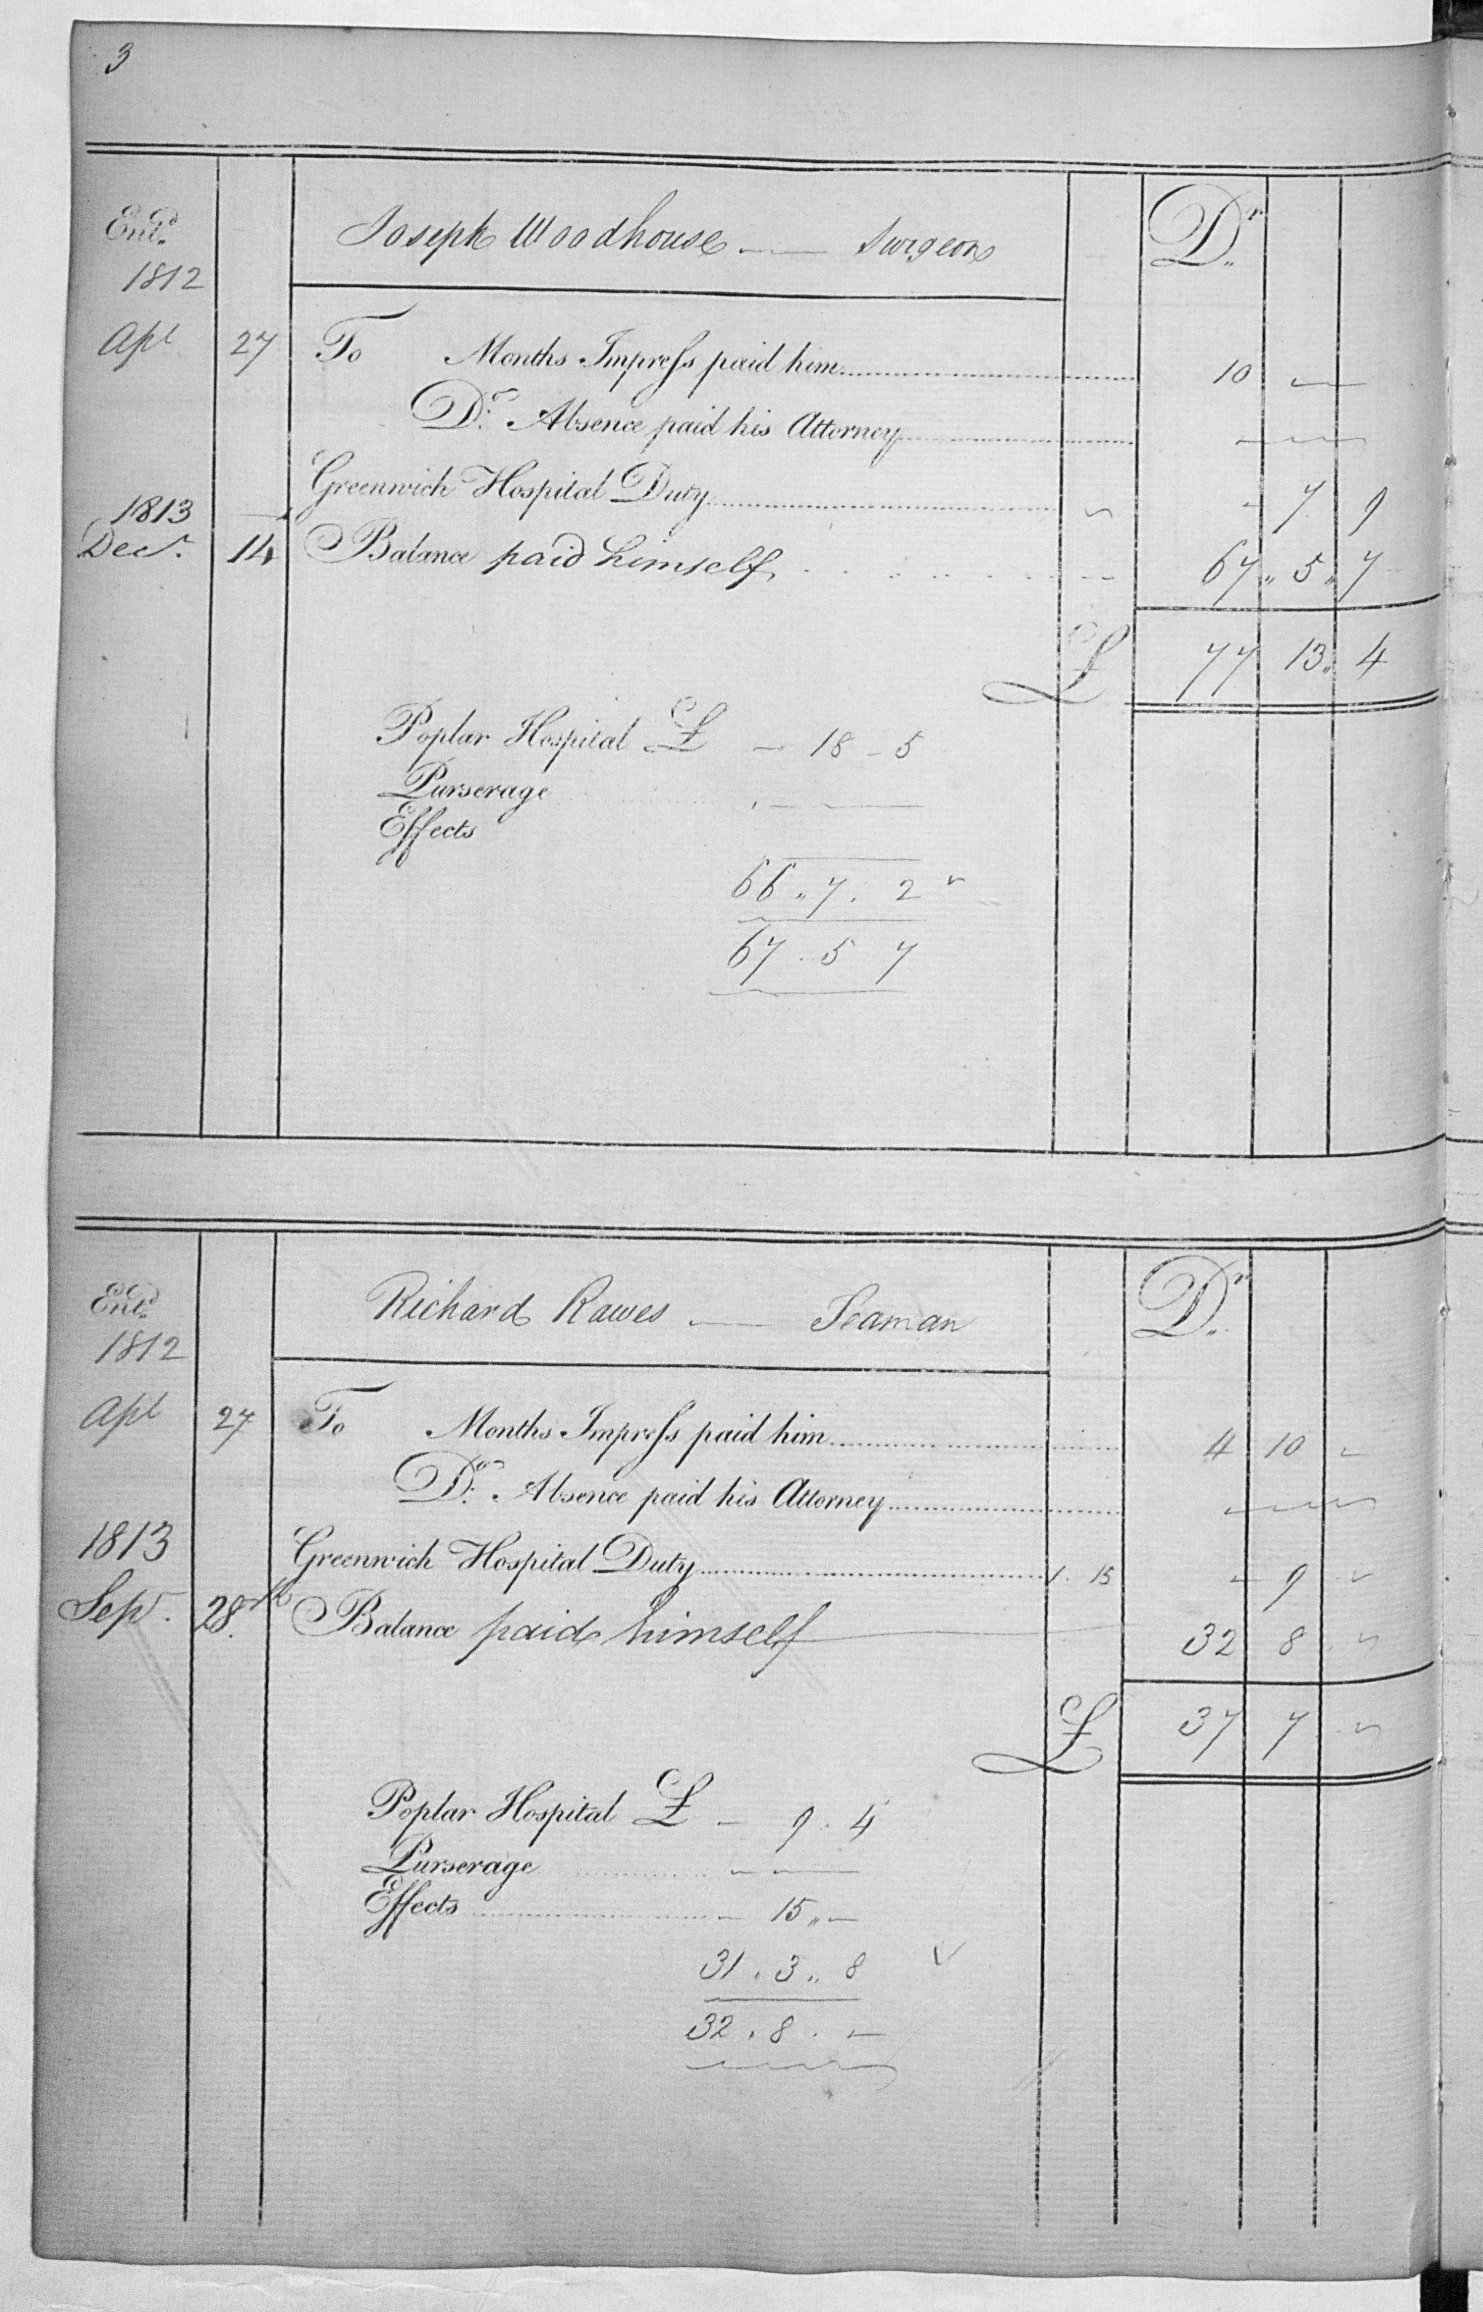 3
Entd.
1812
Joseph Woodhouse — Surgeon Dr.
Apl 27 To Months Impress paid him 10 —
Do. Absence paid his Attorney — — —
Greenwich Hospital Duty - 7 9
1813
Decr. 14 Balance paid himself 67 " 5 " 7
£ 77 13 " 4
Poplar Hospital £ — 18 - 5
Purserage - - —
Effects
66 " 7 . 2
67 . 5 7
Entd.
1812
Richard Rawes — Seaman Dr.
Apl 27 To Months Impress paid him 4 10 -
Do. Absence paid his Attorney — — —
1813
Greenwich Hospital Duty 1. 15 - 9 -
Sepr. 28th Balance paid himself 32 8 -
£ 37 7 -
Poplar Hospital £ - 9 . 4
Purserage - —
Effects - 15 " -
31 . 3 " 8
32 . 8 . -